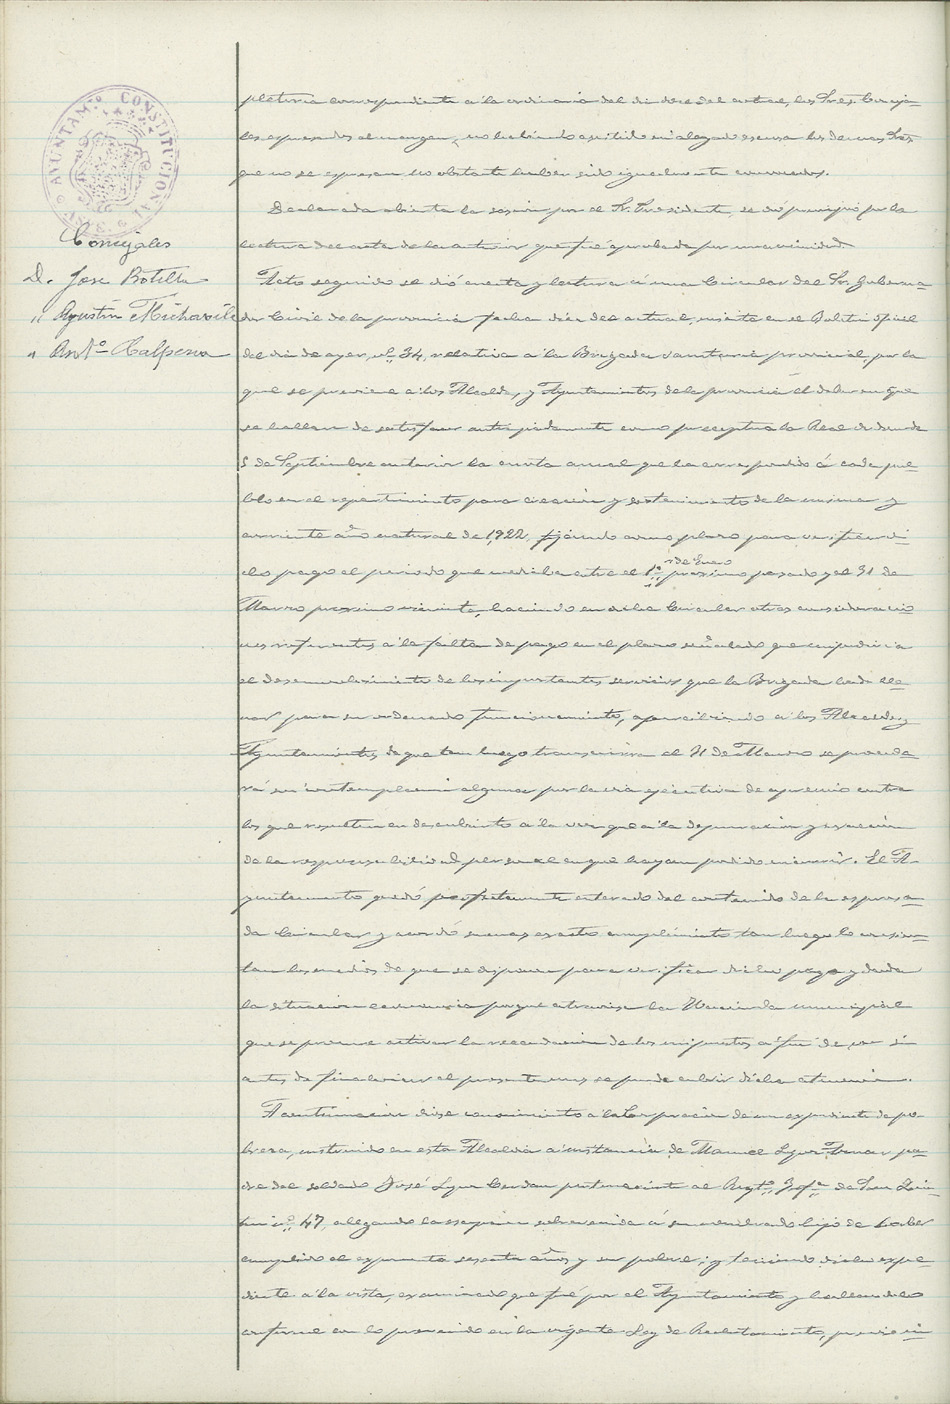 AYUNTAM.º CONSTITUCIONAL
Concejales
D. Jose Botella
" Agustin Michavila
" Ant.º Calpena
pletoria correspondiente a la ordinaria del dia doce del actual, los Sres. Conceja-
les espresados al margen, no habiendo asistido ni alegado escusa los demas Sres.
que no se espresan no obstante haber sido igualmente convocados.
Declarada abierta la sesion por el Sr. Presidente, se dió principio por la
lectura del acta de la anterior que fué aprobada por unanimidad.
Acto seguido se dió cuenta y lectura á una Circular del Sr. Goberna-
dor Civil de la provincia fecha diez del actual, inserta en el Boletin Oficial
del dia de ayer, nº 34, relativa a la Brigada sanitaria provincial, por la
que se previene a los Alcaldes y Ayuntamientos de la provincia el deber en que
se hallan de satisfacer anticipadamente como preceptua la Real orden de
5 de Septiembre anterior la cuota anual que ha correspondido á cada pue-
blo en el repartimiento para creacion y sostenimiento de la misma y
corriente año natural de 1922, fijando como plazo para verificar di-
cho pago el periodo que media entre el 1º de Enero proximo pasado y el 31 de
Marzo proximo viniente, haciendo en dicha Circular otras consideracio-
nes referentes a la falta de pago en el plazo señalado que perjudicaria
el desenvolvimiento de los importantes servicios que la Brigada ha de lle-
nar para su ordenado funcionamiento, apercibiendo a los Alcaldes y
Ayuntamientos de que tan luego transcurra el 31 de Marzo se procede-
rá sin contemplacion alguna por la via ejecutiva de apremio contra
los que resulten en descubierto a la vez que a la depuracion y exaccion
de la responsabilidad personal en que hayan podido incurrir. El A-
yuntamiento quedó perfectamente enterado del contenido de la espresa-
da Circular y acordó su mas exacto cumplimiento tan luego lo
los medios de que se dispone para verificar dicho pago y dada
la situacion economica porque atraviesa la Hacienda municipal
que se procure activar la recaudacion de los impuestos a fin de ver si
antes de finalizar el presente mes se puede cubrir dicha atencion.
A continuacion dióse conocimiento a la Corporacion de un expediente de po-
breza, instruido en esta Alcaldia a instancia de Manuel pa-
dre del soldado José Cerdan perteneciente al Regtº Infª de San Quin-
tin nº 47, alegando la escepcion sobrevenida á su nombrado hijo de haber
cumplido el esponente sesenta años y ser pobre; y teniendo dicho expe-
diente a la vista, examinado que fué por el Ayuntamiento y hallandolo
conforme con lo prevenido en la vigente Ley de Reclutamiento, previo in-